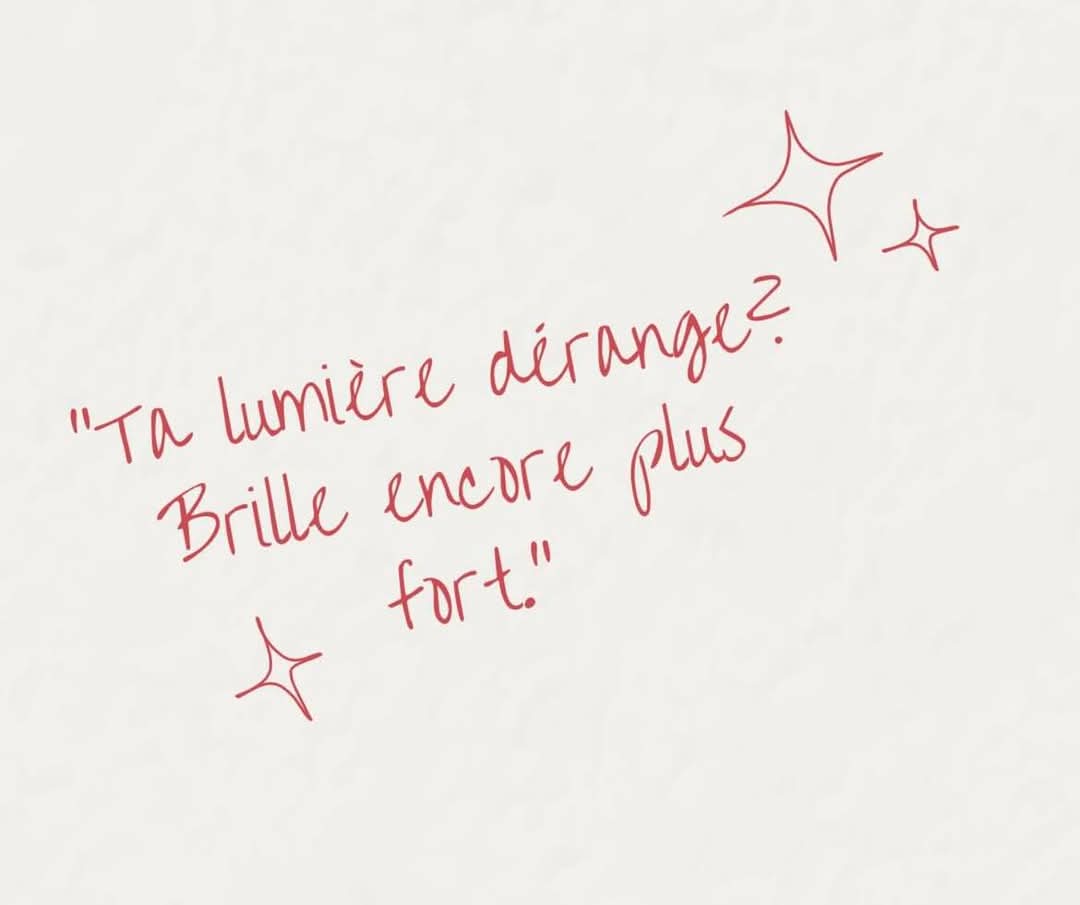 "Ta lumière dérange?
Brille encore plus
fort."